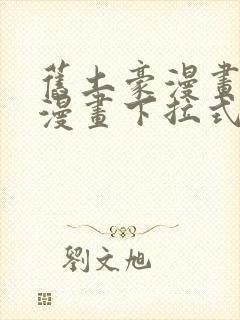 舊土豪漫畫
漫畫下拉式
劉文旭